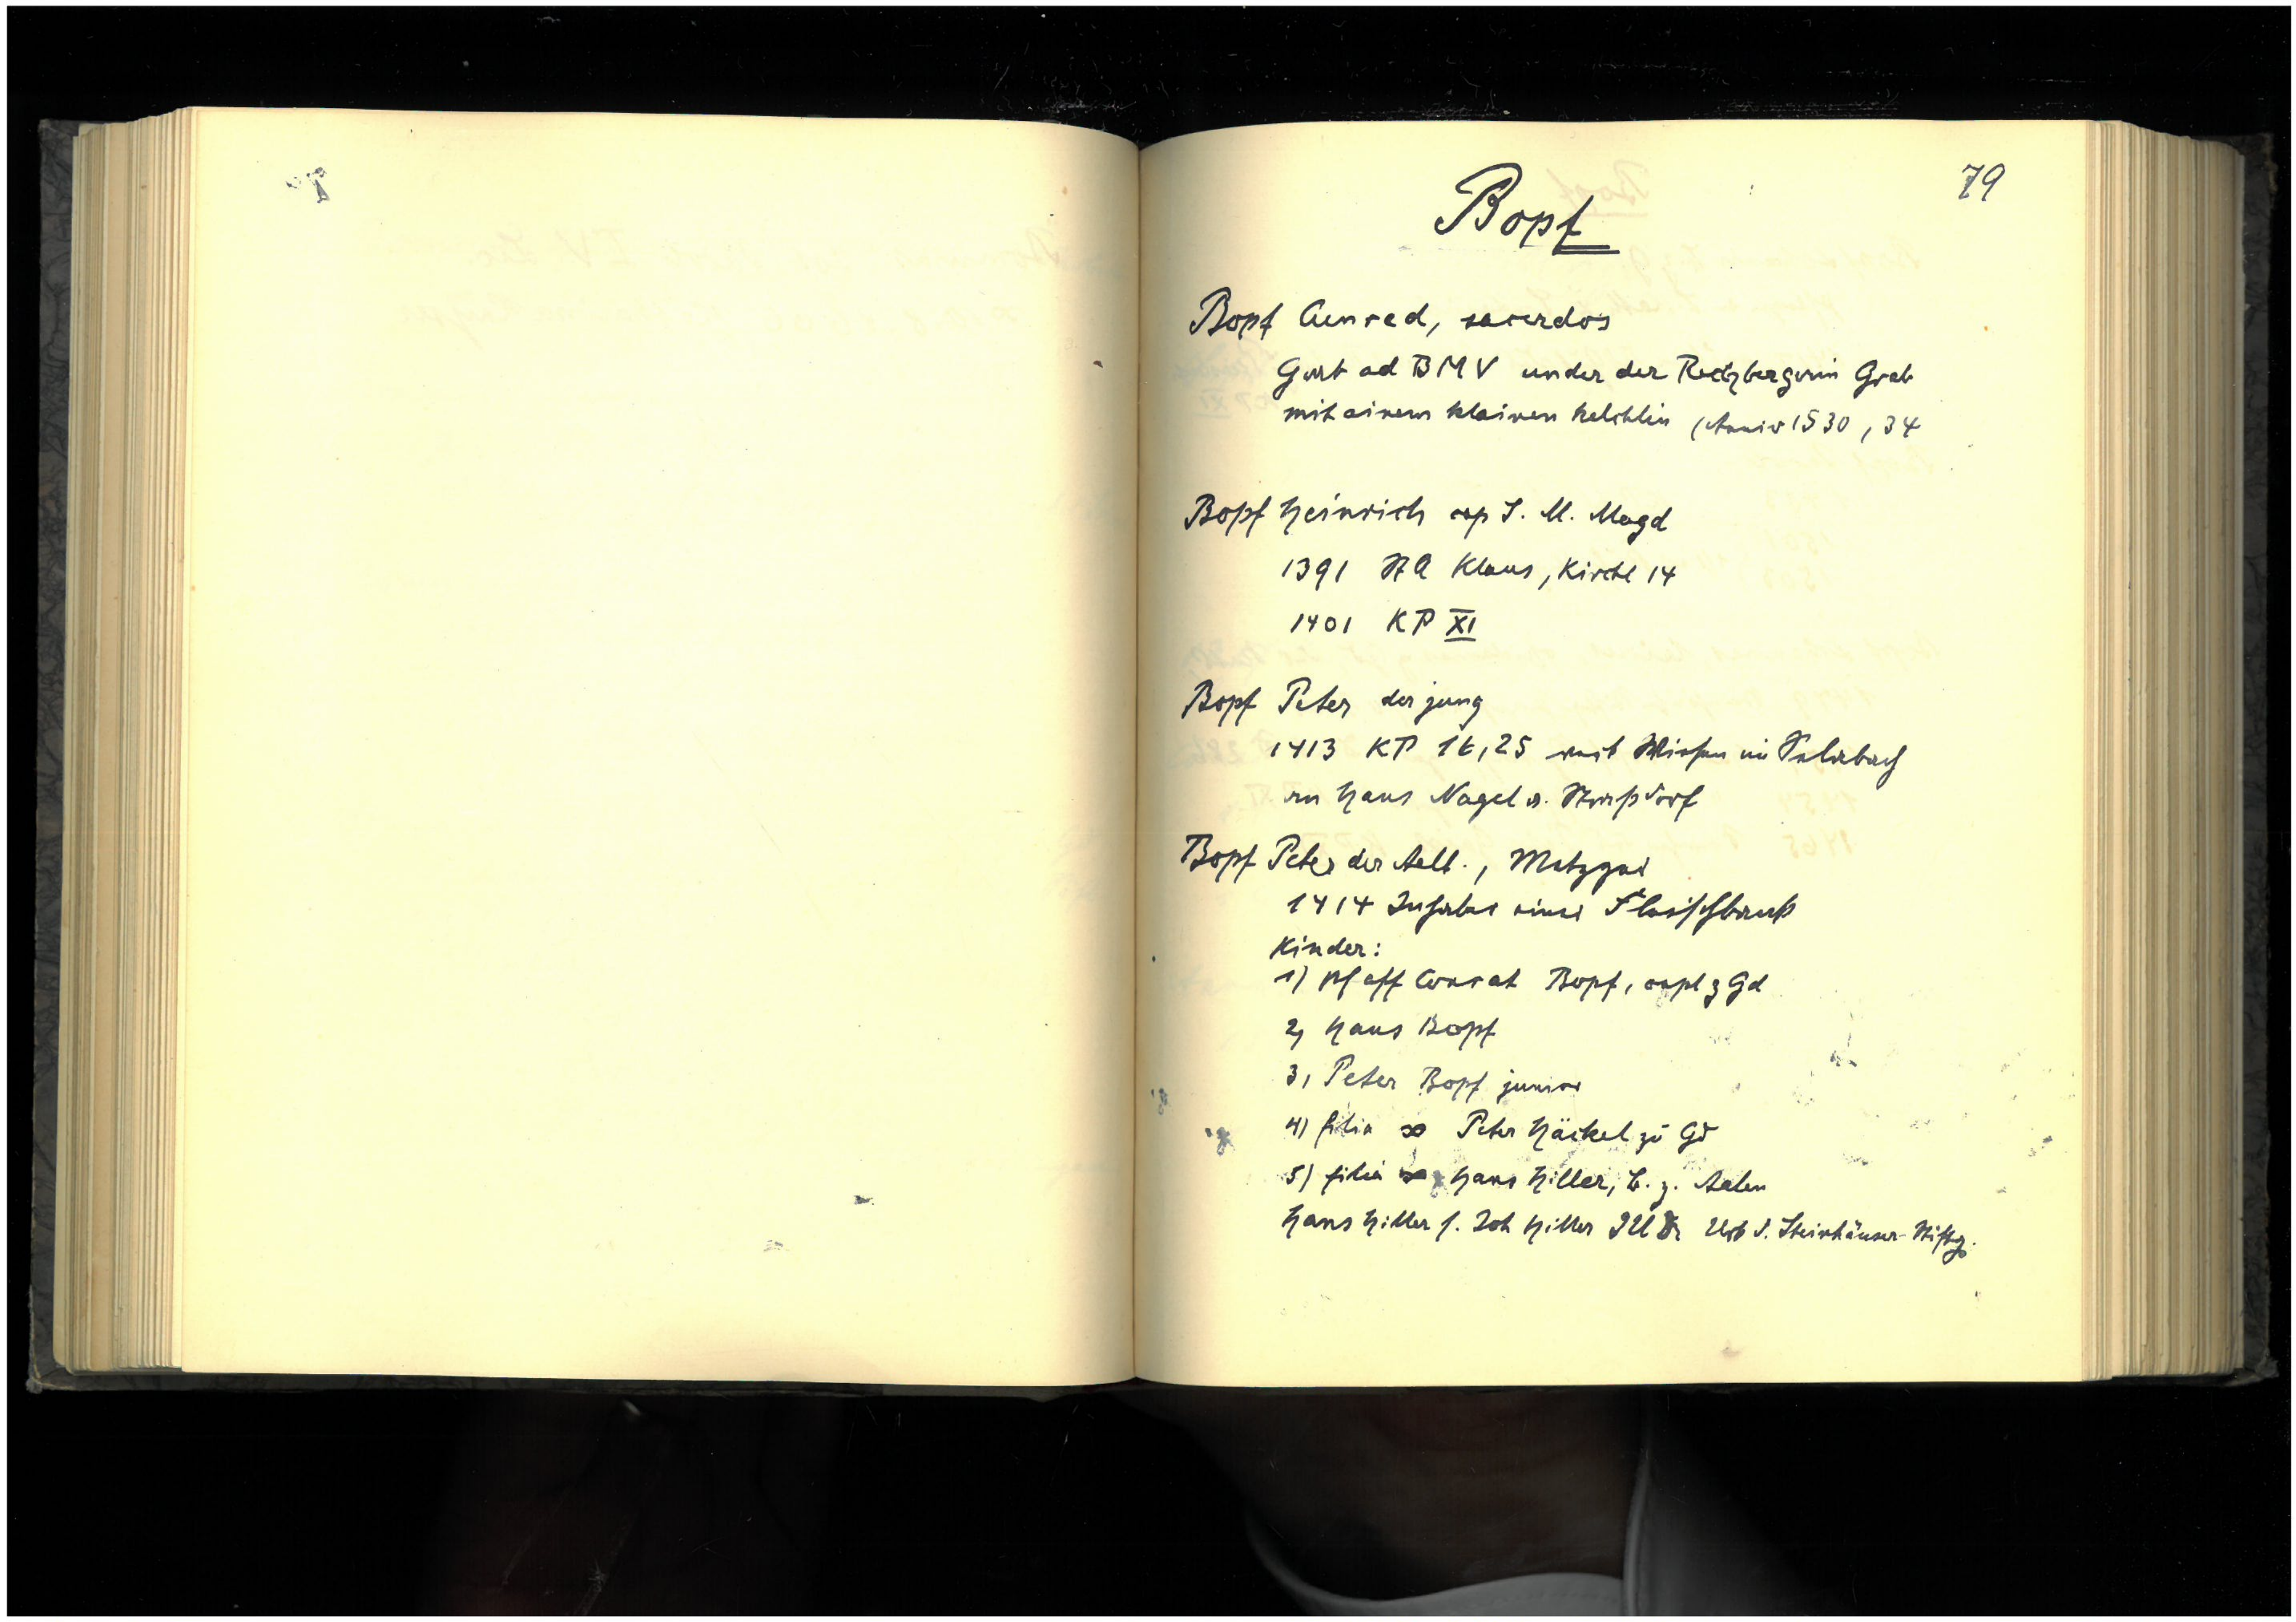 79
Bopf
Bopf Cunrad, sacerdos
Gurt ad BMV under der Rechbergerin Grab
mit ainem klainen kelchlin (Anniv 1530, 34
Bopf Heinrich cap S. M. Magd
1391 StA Klaus, Kirchl 14
1401 KP XI
Bopf Peter der jung
1413 KP 16,25 verk Wiesen im
an Hans Nagel v. Straßdorf
Bopf Peter der Aelt., Metzger
1414 Inhaber einer Fleischbank
Kinder:
1) Pfaff Conrat Bopf, capl z Gd
2, Hans Bopf
3, Peter Bopf junior
4) filia ∞ Peter Häckel zu Gd
5) filia ∞ Hans Hiller, B. z. Aalen
Hans Hiller s. Joh Hiller Urb d. Steinhäuser-Stiftg.